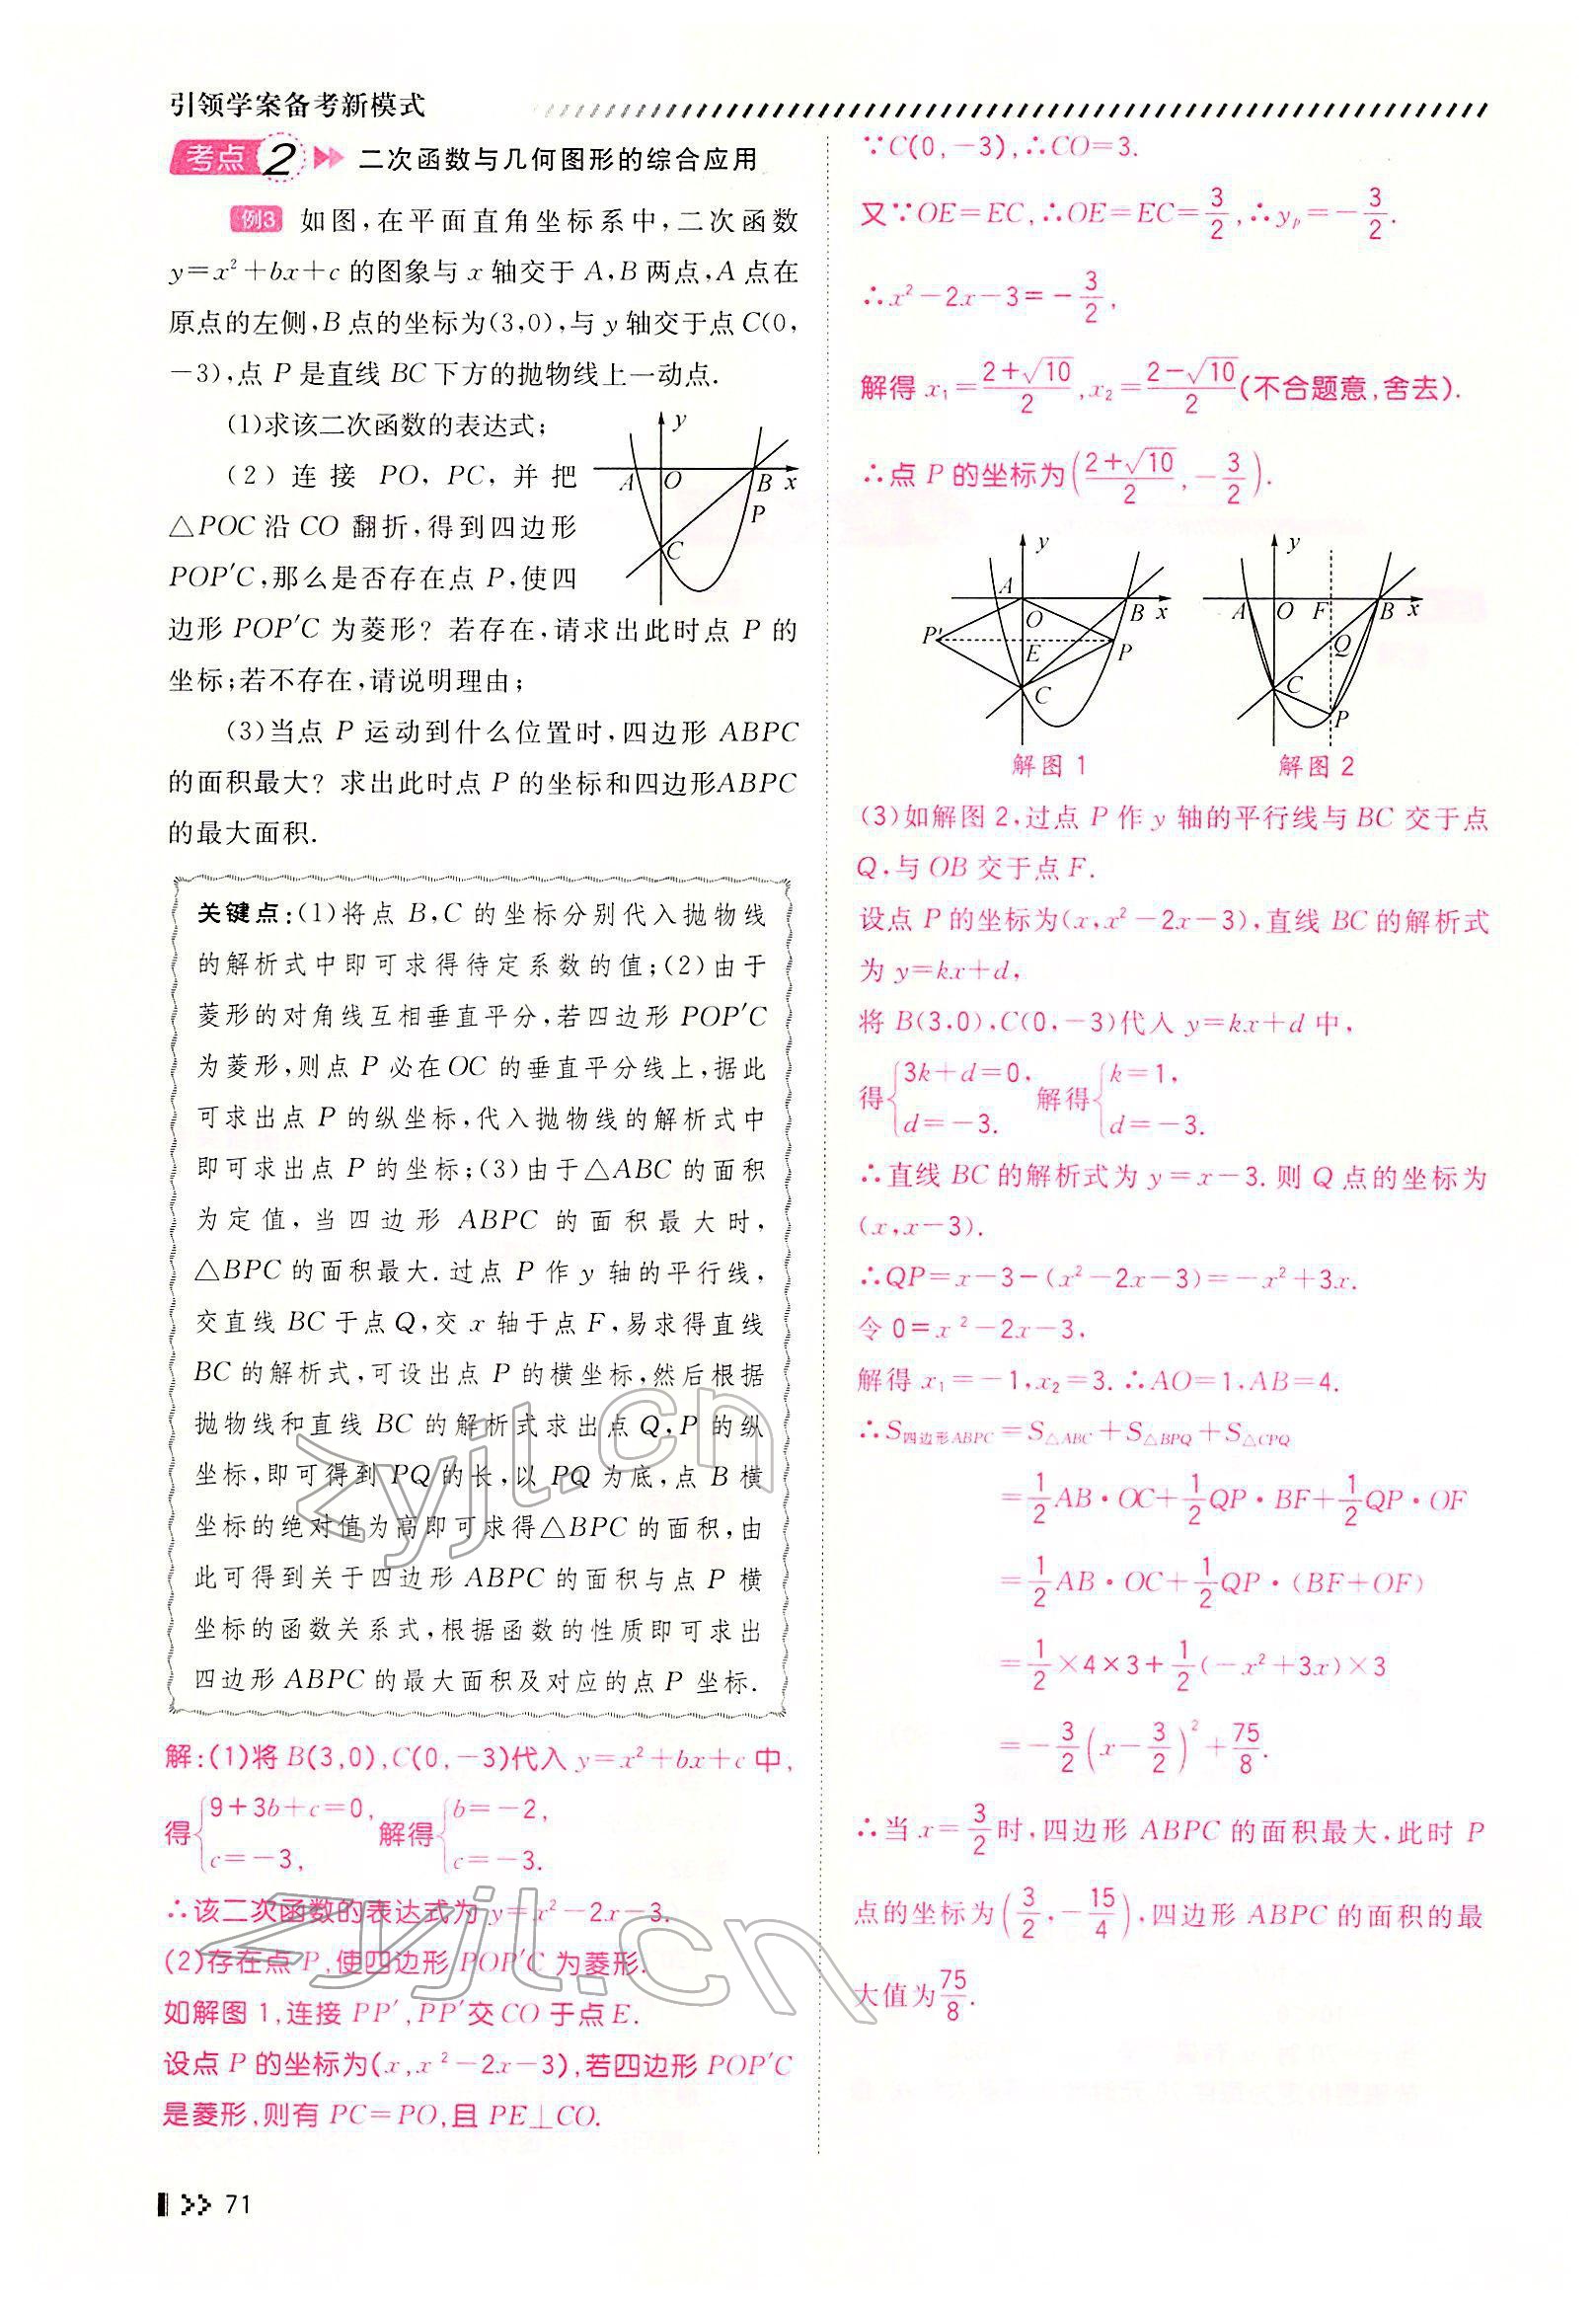 引领学案备考新模式
考点2 二次函数与几何图形的综合应用
例3 如图,在平面直角坐标系中,二次函数
y=x²+bx+c 的图象与 x 轴交于 A,B 两点,A 点在
原点的左侧,B 点的坐标为(3,0),与 y 轴交于点 C(0,
-3),点 P 是直线 BC 下方的抛物线上一动点.
(1)求该二次函数的表达式;
(2)连接 PO, PC, 并把
△POC 沿 CO 翻折,得到四边形
POP′C,那么是否存在点 P,使四
边形 POP′C 为菱形?若存在,请求出此时点 P 的
坐标;若不存在,请说明理由;
y
A O B x
P
C
(3)当点 P 运动到什么位置时,四边形 ABPC
的面积最大?求出此时点 P 的坐标和四边形ABPC
的最大面积.
关键点:(1)将点 B,C 的坐标分别代入抛物线
的解析式中即可求得待定系数的值;(2)由于
菱形的对角线互相垂直平分,若四边形 POP′C
为菱形,则点 P 必在 OC 的垂直平分线上,据此
可求出点 P 的纵坐标,代入抛物线的解析式中
即可求出点 P 的坐标;(3)由于△ABC 的面积
为定值,当四边形 ABPC 的面积最大时,
△BPC 的面积最大.过点 P 作 y 轴的平行线,
交直线 BC 于点 Q,交 x 轴于点 F,易求得直线
BC 的解析式,可设出点 P 的横坐标,然后根据
抛物线和直线 BC 的解析式求出点 Q,P 的纵
坐标,即可得到 PQ 的长,以 PQ 为底,点 B 横
坐标的绝对值为高即可求得△BPC 的面积,由
此可得到关于四边形 ABPC 的面积与点 P 横
坐标的函数关系式,根据函数的性质即可求出
四边形 ABPC 的最大面积及对应的点 P 坐标.
解:(1)将 B(3,0),C(0,-3)代入 y=x²+bx+c 中,
得{9+3b+c=0, c=-3, 解得{b=-2, c=-3.
∴该二次函数的表达式为 y=x²-2x-3.
(2)存在点 P,使四边形 POP′C 为菱形.
如解图 1,连接 PP′,PP′交 CO 于点 E.
设点 P 的坐标为(x,x²-2x-3),若四边形 POP′C
是菱形,则有 PC=PO,且 PE⊥CO.
∵C(0,-3),∴CO=3.
又∵OE=EC,∴OE=EC=3/2,∴yₚ=-3/2.
∴x²-2x-3=-3/2,
解得 x₁=(2+√10)/2,x₂=(2-√10)/2(不合题意,舍去).
∴点 P 的坐标为((2+√10)/2,-3/2).
y
A O B x
P′ E P
C
解图 1
y
A O F B x
Q
C
P
解图 2
(3)如解图 2,过点 P 作 y 轴的平行线与 BC 交于点
Q,与 OB 交于点 F.
设点 P 的坐标为(x,x²-2x-3),直线 BC 的解析式
为 y=kx+d,
将 B(3,0),C(0,-3)代入 y=kx+d 中,
得{3k+d=0, d=-3. 解得{k=1, d=-3.
∴直线 BC 的解析式为 y=x-3.则 Q 点的坐标为
(x,x-3).
∴QP=x-3-(x²-2x-3)=-x²+3x.
令 0=x²-2x-3,
解得 x₁=-1,x₂=3.∴AO=1,AB=4.
∴S四边形ABPC=S△ABC+S△BPQ+S△CPQ
=1/2AB·OC+1/2QP·BF+1/2QP·OF
=1/2AB·OC+1/2QP·(BF+OF)
=1/2×4×3+1/2(-x²+3x)×3
=-3/2(x-3/2)²+75/8.
∴当 x=3/2时,四边形 ABPC 的面积最大,此时 P
点的坐标为(3/2,-15/4),四边形 ABPC 的面积的最
大值为75/8.
zyjl.cn
zyjl.cn
71